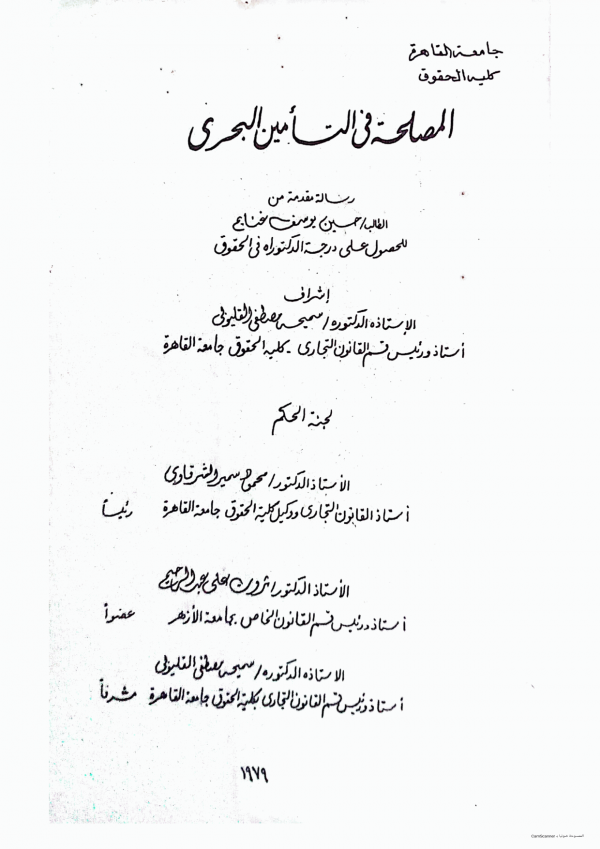 جامعة القاهرة
كلية الحقوق
المصلحة فى التأمين البحرى
رسالة مقدمة من
الطالب/حسين يوسف غنايم
للحصول على درجة الدكتوراه فى الحقوق
إشراف
الاستاذه الدكتوره/سميحه مصطفى القليوبى
أستاذ ورئيس قسم القانون التجارى - كلية الحقوق جامعة القاهرة
لجنة الحكم
الأستاذ الدكتور/محمود سمير الشرقاوى
أستاذ القانون التجارى ووكيل كلية الحقوق جامعة القاهرة رئيساً
الأستاذ الدكتور/ثروت على عبد الرحيم
أستاذ ورئيس قسم القانون الخاص بجامعة الأزهر عضواً
الاستاذه الدكتوره/سميحه مصطفى القليوبى
أستاذ ورئيس قسم القانون التجارى بكلية الحقوق جامعة القاهرة مشرفاً
١٩٧٩
الممسوحة ضوئيا بـ CamScanner